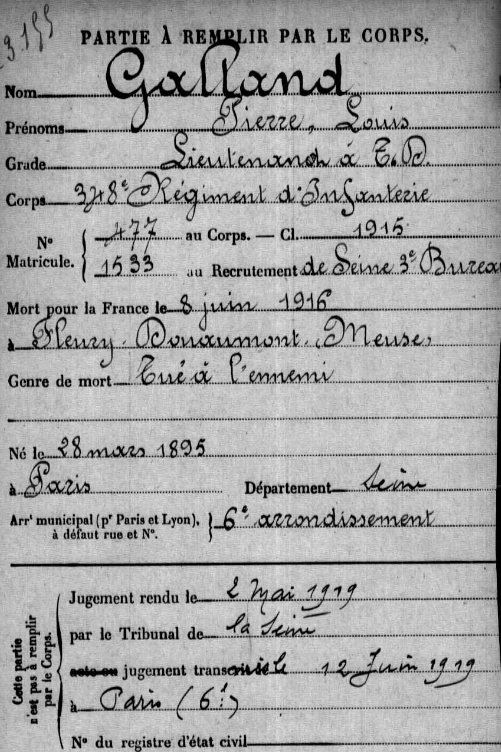 3155
PARTIE À REMPLIR PAR LE CORPS.
Nom Galland
Prénoms Pierre, Louis
Grade Lieutenant à T.D.
Corps 348e Régiment d'Infanterie
N° Matricule. { 477 au Corps. — Cl. 1915
1533 au Recrutement de Seine 3e Bureau
Mort pour la France le 8 juin 1916
à Fleury-Douaumont (Meuse)
Genre de mort Tué à l'ennemi
Né le 28 mars 1895
à Paris Département Seine
Arrt municipal (pr Paris et Lyon), à défaut rue et N°. } 6e arrondissement
Cette partie n'est pas à remplir par le Corps.
Jugement rendu le 2 Mai 1919
par le Tribunal de la Seine
acte ou jugement transcrit le 12 Juin 1919
à Paris (6e)
N° du registre d'état civil